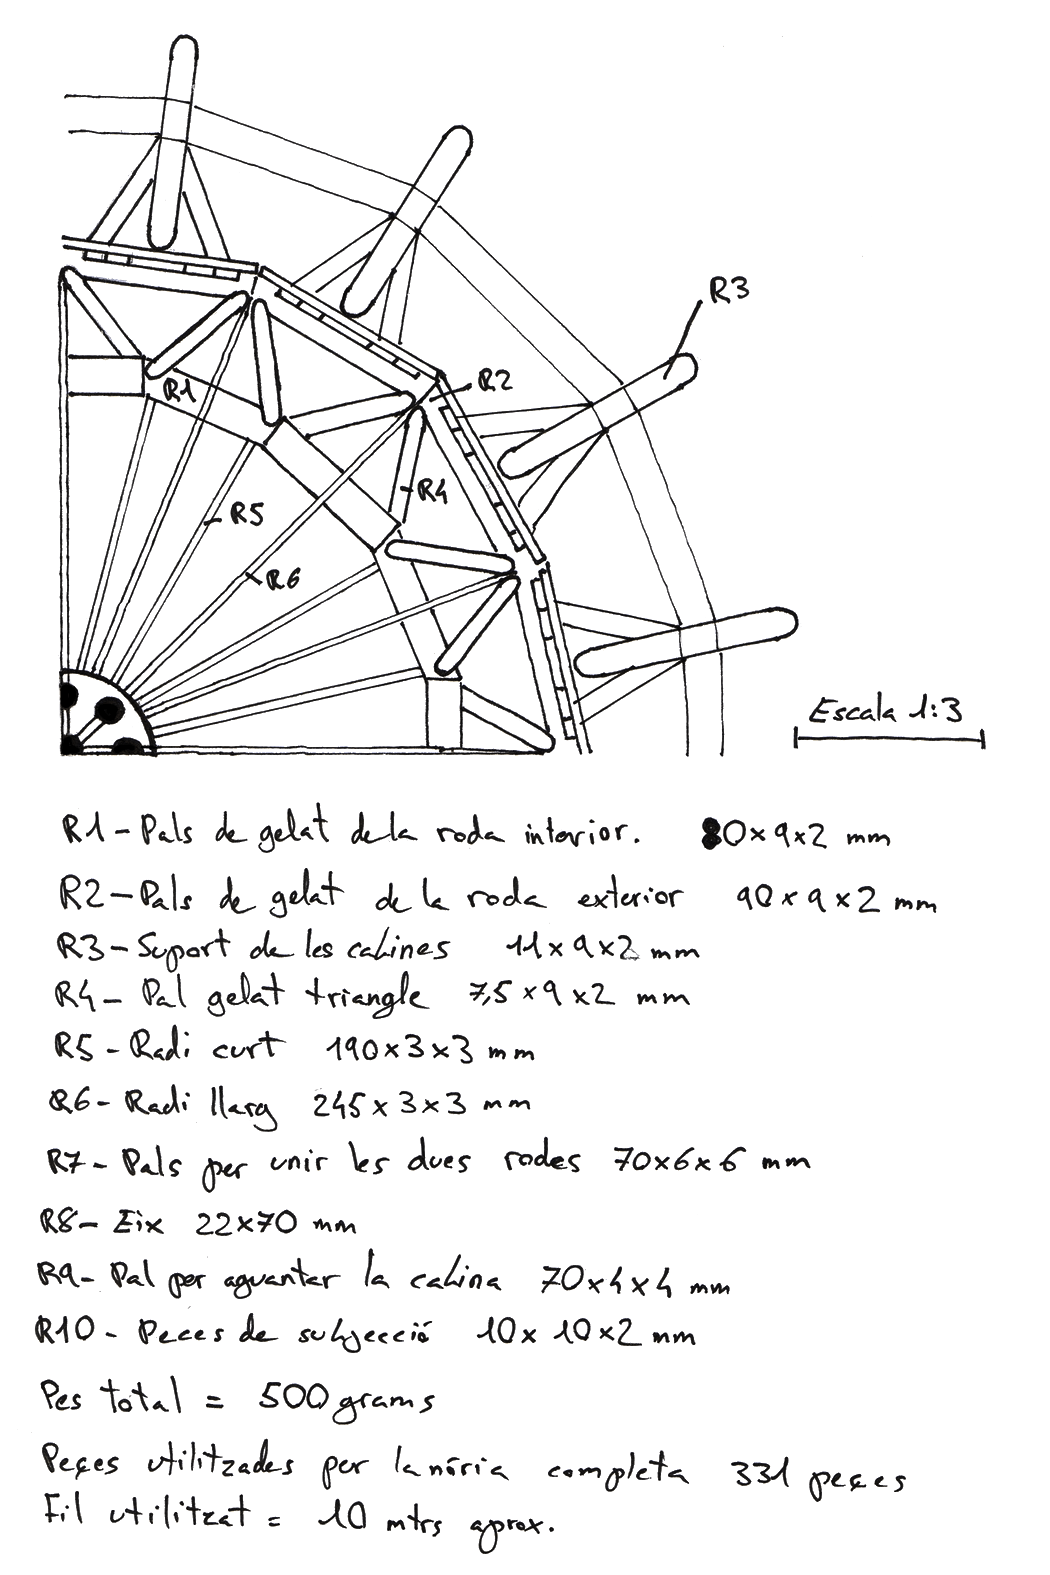 R3
R1
R2
R4
R5
R6
Escala 1:3
R1 - Pals de gelat de la roda interior. 80x9x2 mm
R2 - Pals de gelat de la roda exterior 90x9x2 mm
R3 - Suport de les cabines 11x9x2 mm
R4 - Pal gelat triangle 7,5x9x2 mm
R5 - Radi curt 190x3x3 mm
R6 - Radi llarg 245x3x3 mm
R7 - Pals per unir les dues rodes 70x6x6 mm
R8 - Eix 22x70 mm
R9 - Pal per aguantar la cabina 70x4x4 mm
R10 - Peces de subjecció 10x10x2 mm
Pes total = 500 grams
Peçes utilitzades per la nória completa 331 peçes
Fil utilitzat = 10 mtrs aprox.